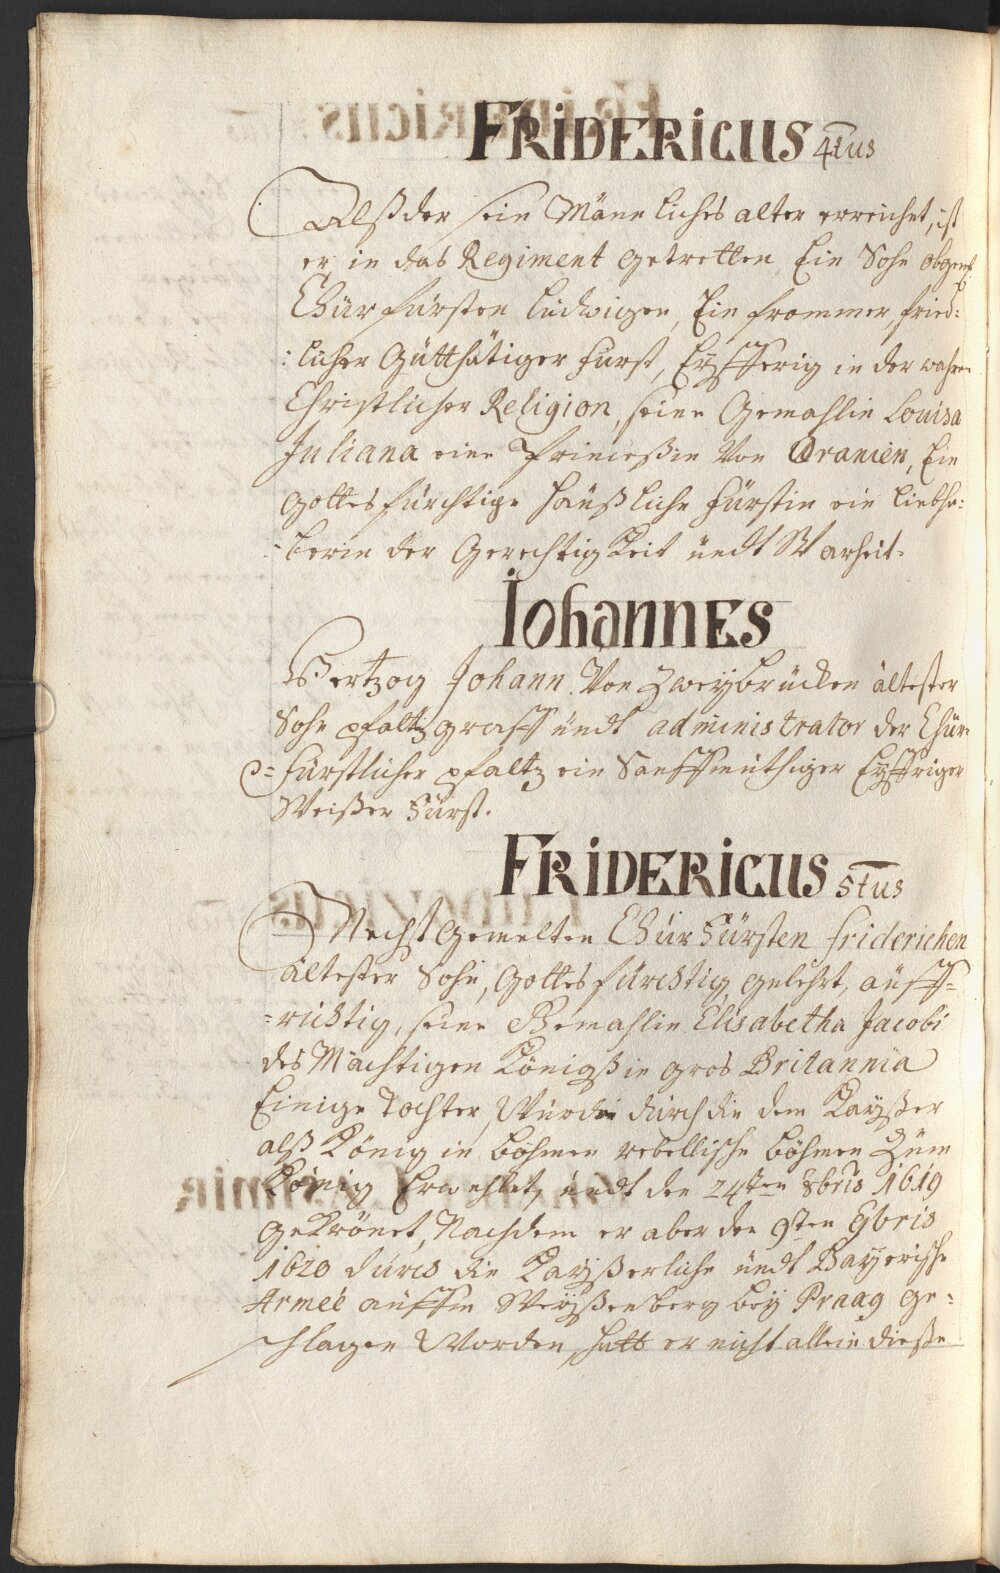 FRIDERICUS 4tus
Alß der sein Männliches alter erreichet, ist
er in das Regiment getretten, Ein Sohn obgemt
Chürfürsten Ludwigen, Ein frommer, fried-
:licher Gütthätiger Fürst, Eyfferig in der wahren
Christlicher Religion, seine Gemahlin Louisa
Juliana eine Princeßin Von Oranien, Ein
gottesfürchtige häußliche Fürstin ein liebha-
:berin der Gerechtigkeit ündt Warheit.
Johannes
Hertzog Johann Von Zweybrücken ältester
Sohn pfaltzgraff ündt administrator der Chür-
=fürstlicher pfaltz ein Sanfftmüthiger Eyffriger
Weißer Fürst.
FRIDERICUS 5tus
Nechstgemelten Chür Fürsten friderichen
ältester Sohn, Gottesfürchtig gelehrt, auff-
=richtig, seine Gemahlin Elisabetha Jacobi
des Mächtigen Königß in gros Britannia
Einige Tochter, Würde dürch die dem Kayßer
alß König in böhmen rebellische böhmen Züm
König Erwehlet, ündt den 24ten 8bris 1619
gekrönet, Nachdem er aber den 9ten 9bris
1620 dürch die Kayßerliche ündt Bayerische
Armeé auffm Weyßenberg bey Praag ge-
schlagen Worden, hatt er nicht allein dieße